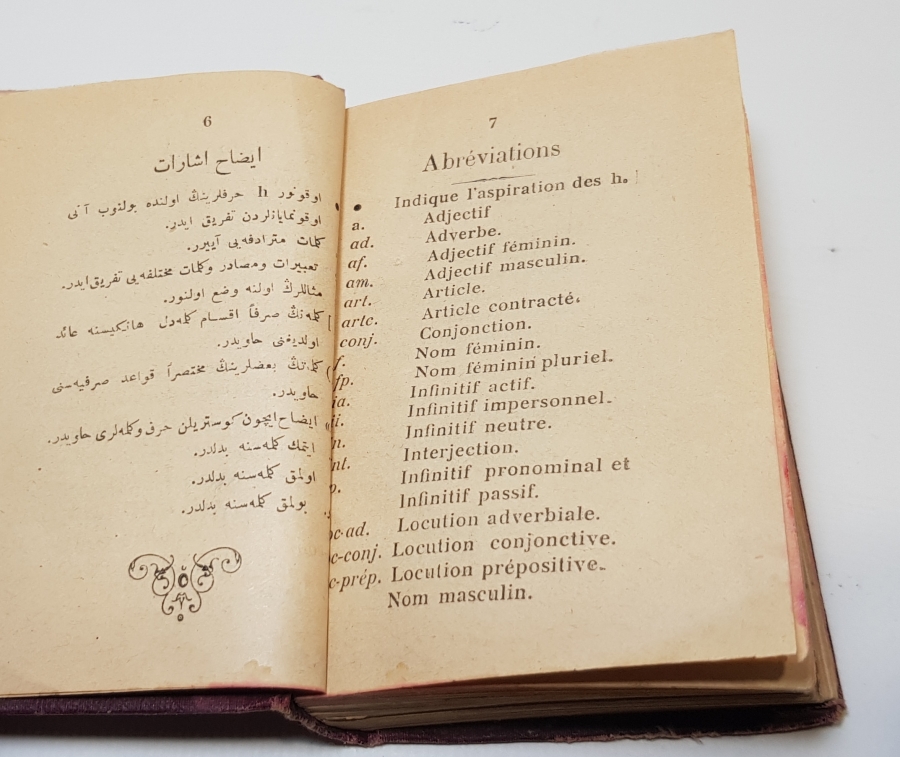 6
ايضاح اشارات
اوقونور h حرفلرينڭ اولنده بولنوب آنى
اوقونمايانلردن تفريق ايدر.
كلمات مترادفه‌يى آييرر.
تعبيرات ومصادر وكلمات مختلفه‌يى تفريق ايدر.
مثاللرڭ اولنه وضع اولنور.
كلمه‌نڭ صرفاً اقسام كلمه‌دل هانكيسنه عائد
اولديغنى حاويدر.
كلماتڭ بعضلرينڭ مختصراً قواعد صرفيه‌سنى
حاويدر.
ايضاح ايچون كوستريلن حرف وكلمه‌لرى حاويدر.
ايتمك كلمه‌سنه بدلدر.
اولمق كلمه‌سنه بدلدر.
بولمق كلمه‌سنه بدلدر.
7
Abréviations
• Indique l'aspiration des h.
a. Adjectif
ad. Adverbe.
af. Adjectif féminin.
am. Adjectif masculin.
art. Article.
artc. Article contracté.
conj. Conjonction.
f. Nom féminin.
fp. Nom féminin pluriel.
ia. Infinitif actif.
ii. Infinitif impersonnel.
n. Infinitif neutre.
nt. Interjection.
p. Infinitif pronominal et
Infinitif passif.
oc-ad. Locution adverbiale.
c-conj. Locution conjonctive.
c-prép. Locution prépositive.
Nom masculin.